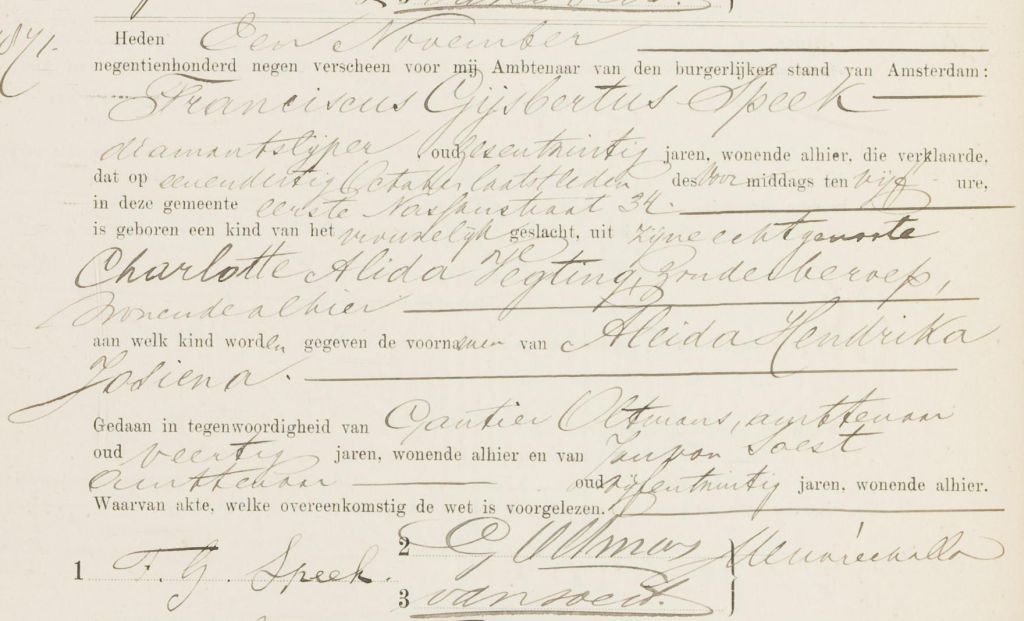 1871.
Heden Een November
negentienhonderd negen verscheen voor mij Ambtenaar van den burgerlijken stand van Amsterdam:
Franciscus Gijsbertus Speek
diamantslijper, oud zesentwintig jaren, wonende alhier, die verklaarde,
dat op eenendertig October laatstleden des voor middags ten vijf ure,
in deze gemeente eerste Nassaustraat 34.
is geboren een kind van het vrouwelijk geslacht, uit zijne echtgenoote
Charlotte Alida Vegting, zonder beroep,
wonende alhier
aan welk kind worden gegeven de voornamen van Aleida Hendrika
Josiena.
Gedaan in tegenwoordigheid van Gautier Oltmans, ambtenaar
oud veertig jaren, wonende alhier en van Jan van Soest
ambtenaar oud vijfentwintig jaren, wonende alhier.
Waarvan akte, welke overeenkomstig de wet is voorgelezen.
1 F. G. Speek.
2 G Oltmans
3 van Soest.